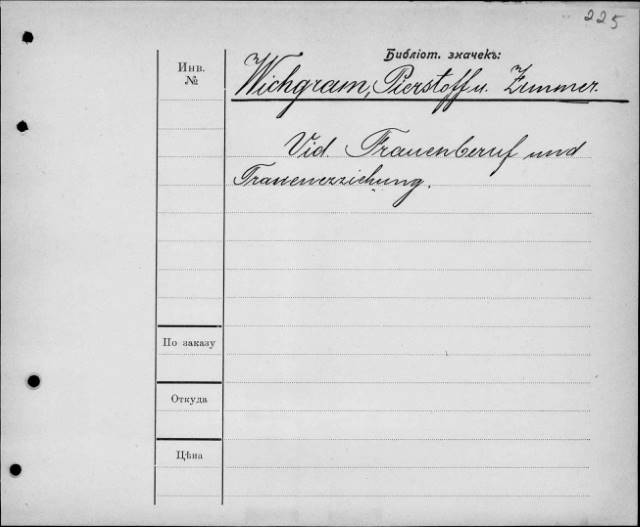 225
Библіот. значекъ:
Инв.
№
Wichgram, Pierstoff u. Zimmer.
Vid. Frauenberuf und
Frauenerziehung.
По заказу
Откуда
Цѣна